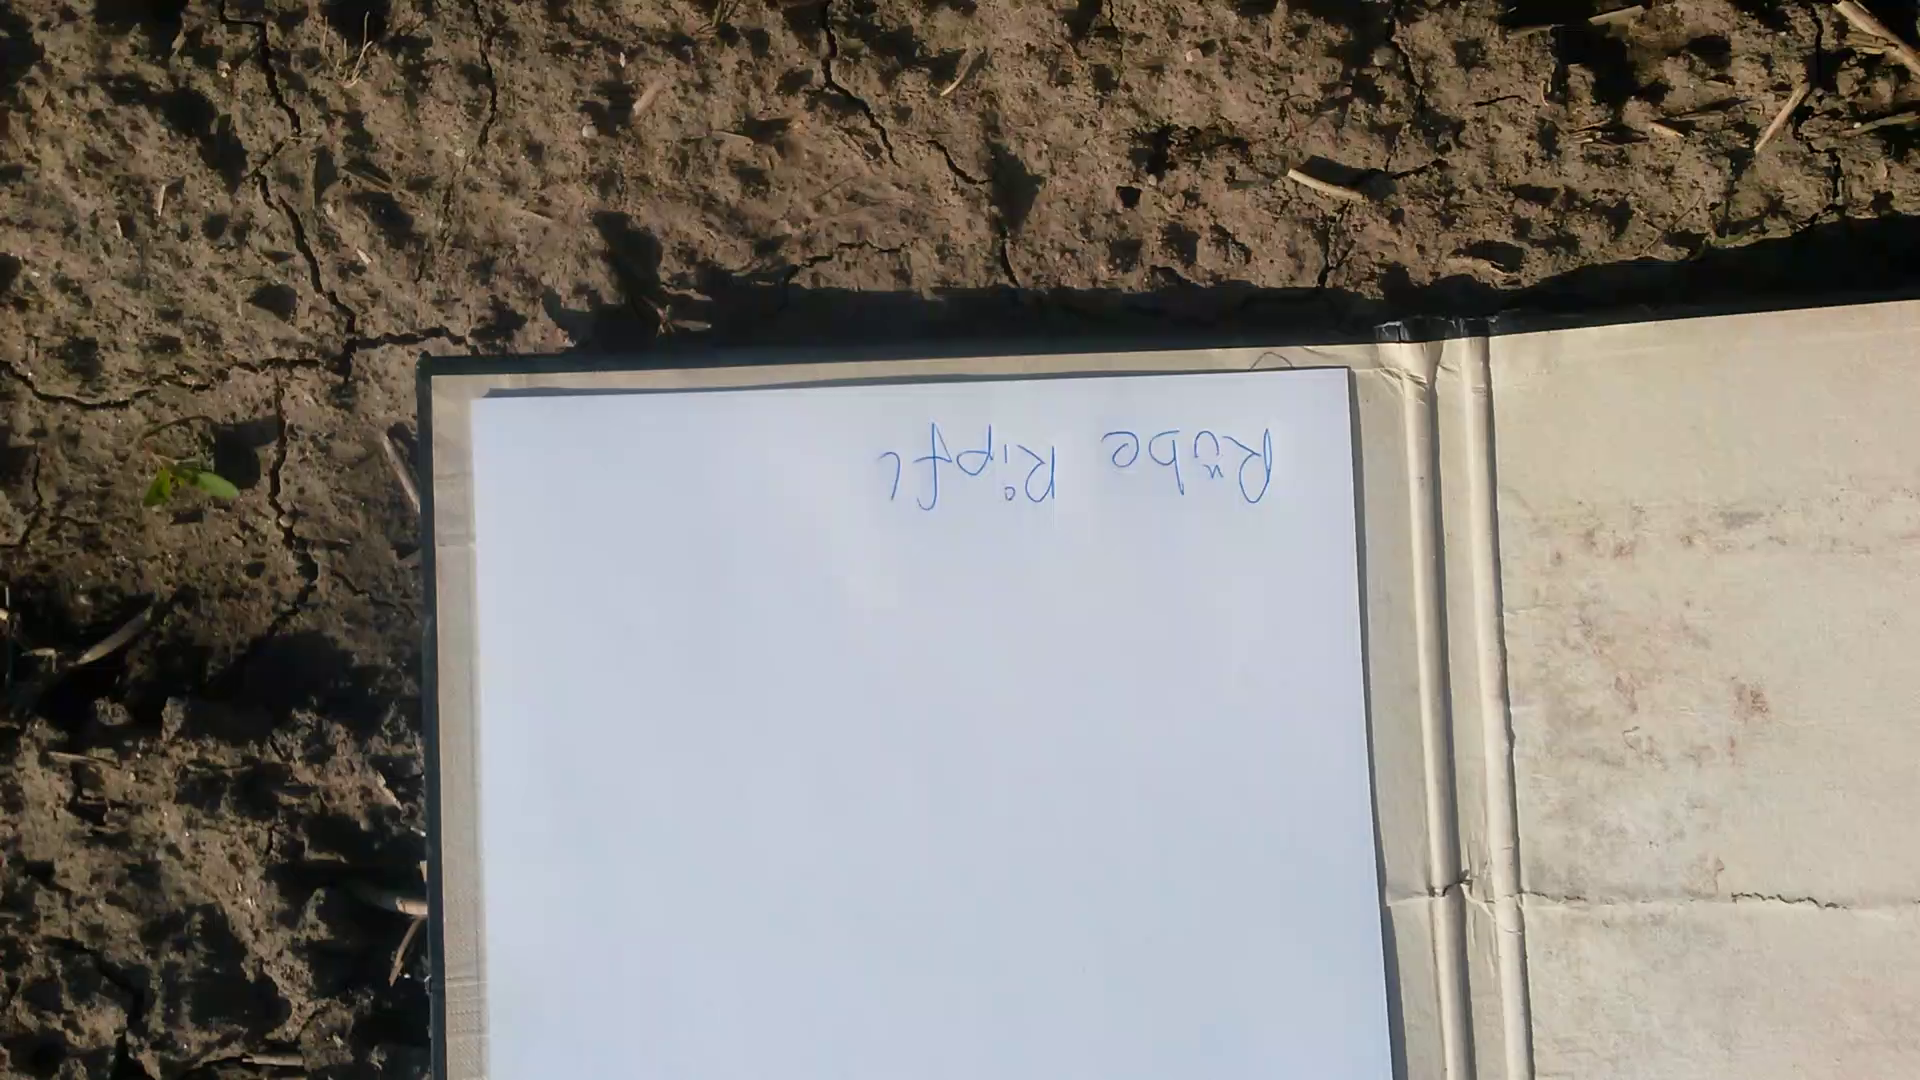 Rübe Ripfl